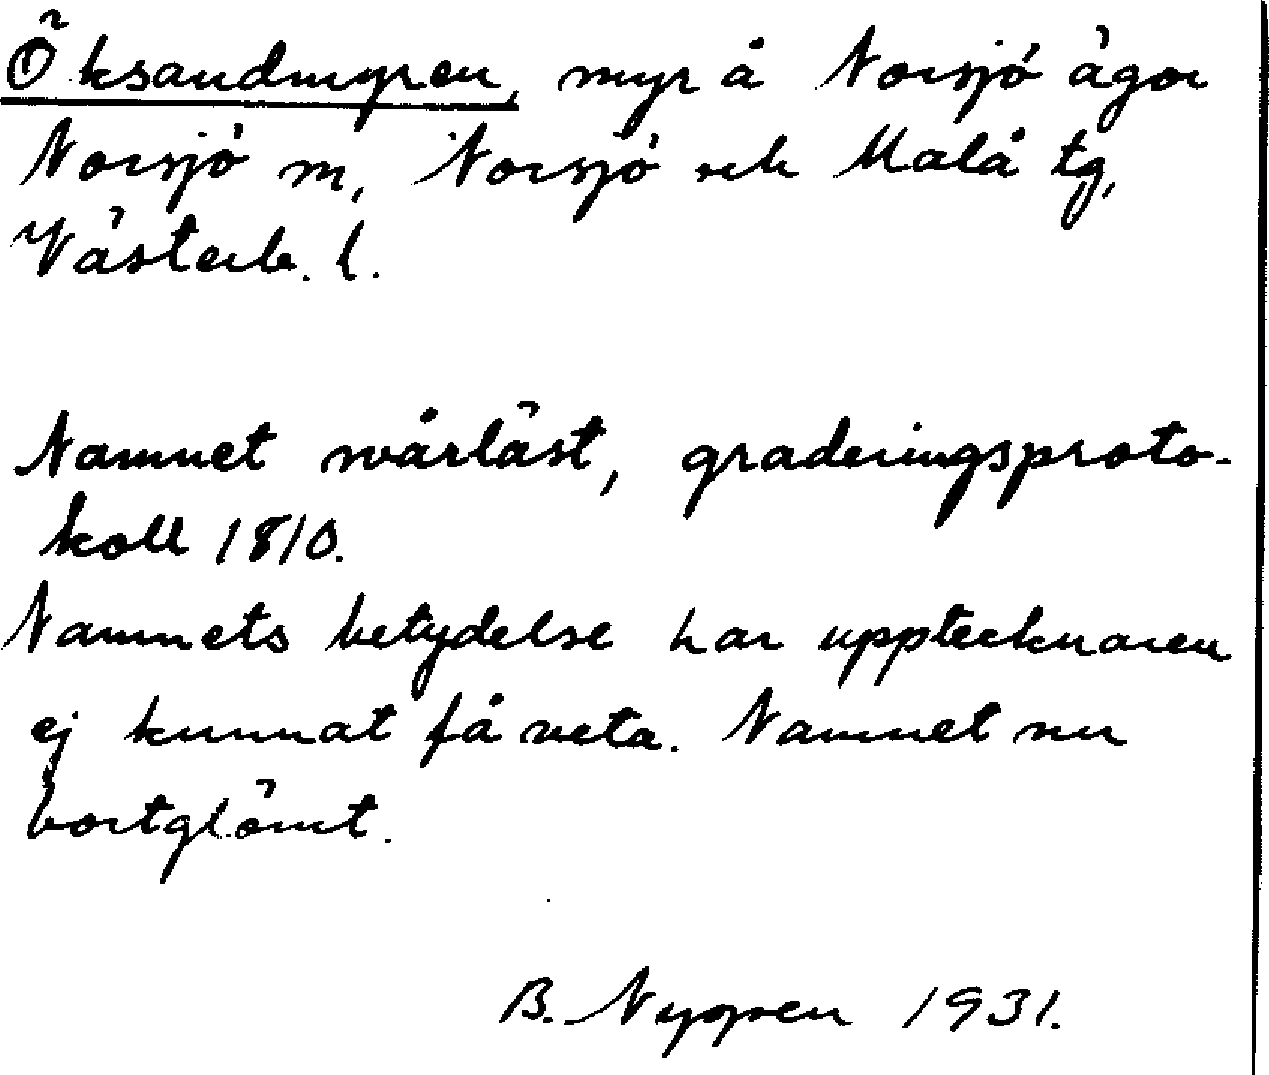 Öksandmyren, myr å Norsjö ägor
Norsjö m, Norsjö och Malå tg,
Västerb. l.
Namnet svårläst, graderingsproto-
koll 1810.
Namnets betydelse har upptecknaren
ej kunnat få veta. Namnet nu
bortglömt.
B. Nygren 1931.